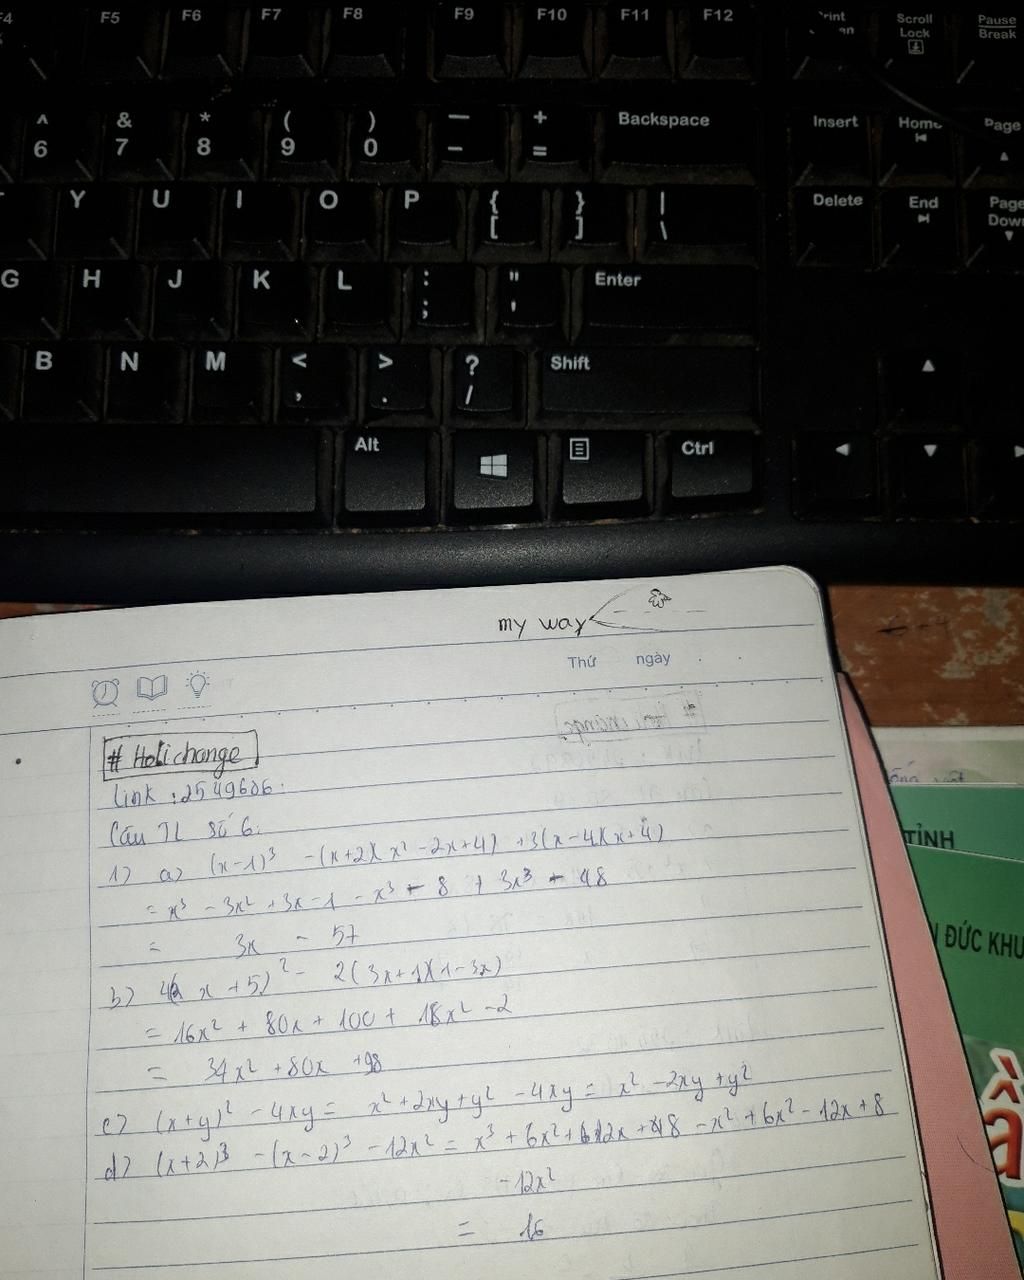 F4 F5 F6 F7 F8 F9 F10 F11 F12 Scroll Lock Pause Break
^ 6 & 7 * 8 ( 9 ) 0 — - + = Backspace Insert Home Page
Y U I O P { [ } ] | \ Delete End Page Down
G H J K L : ; " ' Enter
B N M < , > . ? / Shift
Alt Ctrl
my way
Thứ ngày
# Holichange
link : 2549686.
Câu TL số 6:
1) a) (x-1)³ - (x+2)(x² - 2x+4) + 3(x-4)(x+4)
= x³ - 3x² + 3x - 1 - x³ - 8 + 3x³ - 48
= 3x - 57
b) 4(2x+5)² - 2(3x+1)(1-3x)
= 16x² + 80x + 100 + 18x² - 2
= 34x² + 80x + 98
c) (x+y)² - 4xy = x² + 2xy + y² - 4xy = x² - 2xy + y²
d) (x+2)³ - (x-2)³ - 12x² = x³ + 6x² + 12x + 8 - x² + 6x² - 12x + 8
- 12x²
= 16
TỈNH
ĐỨC KHU